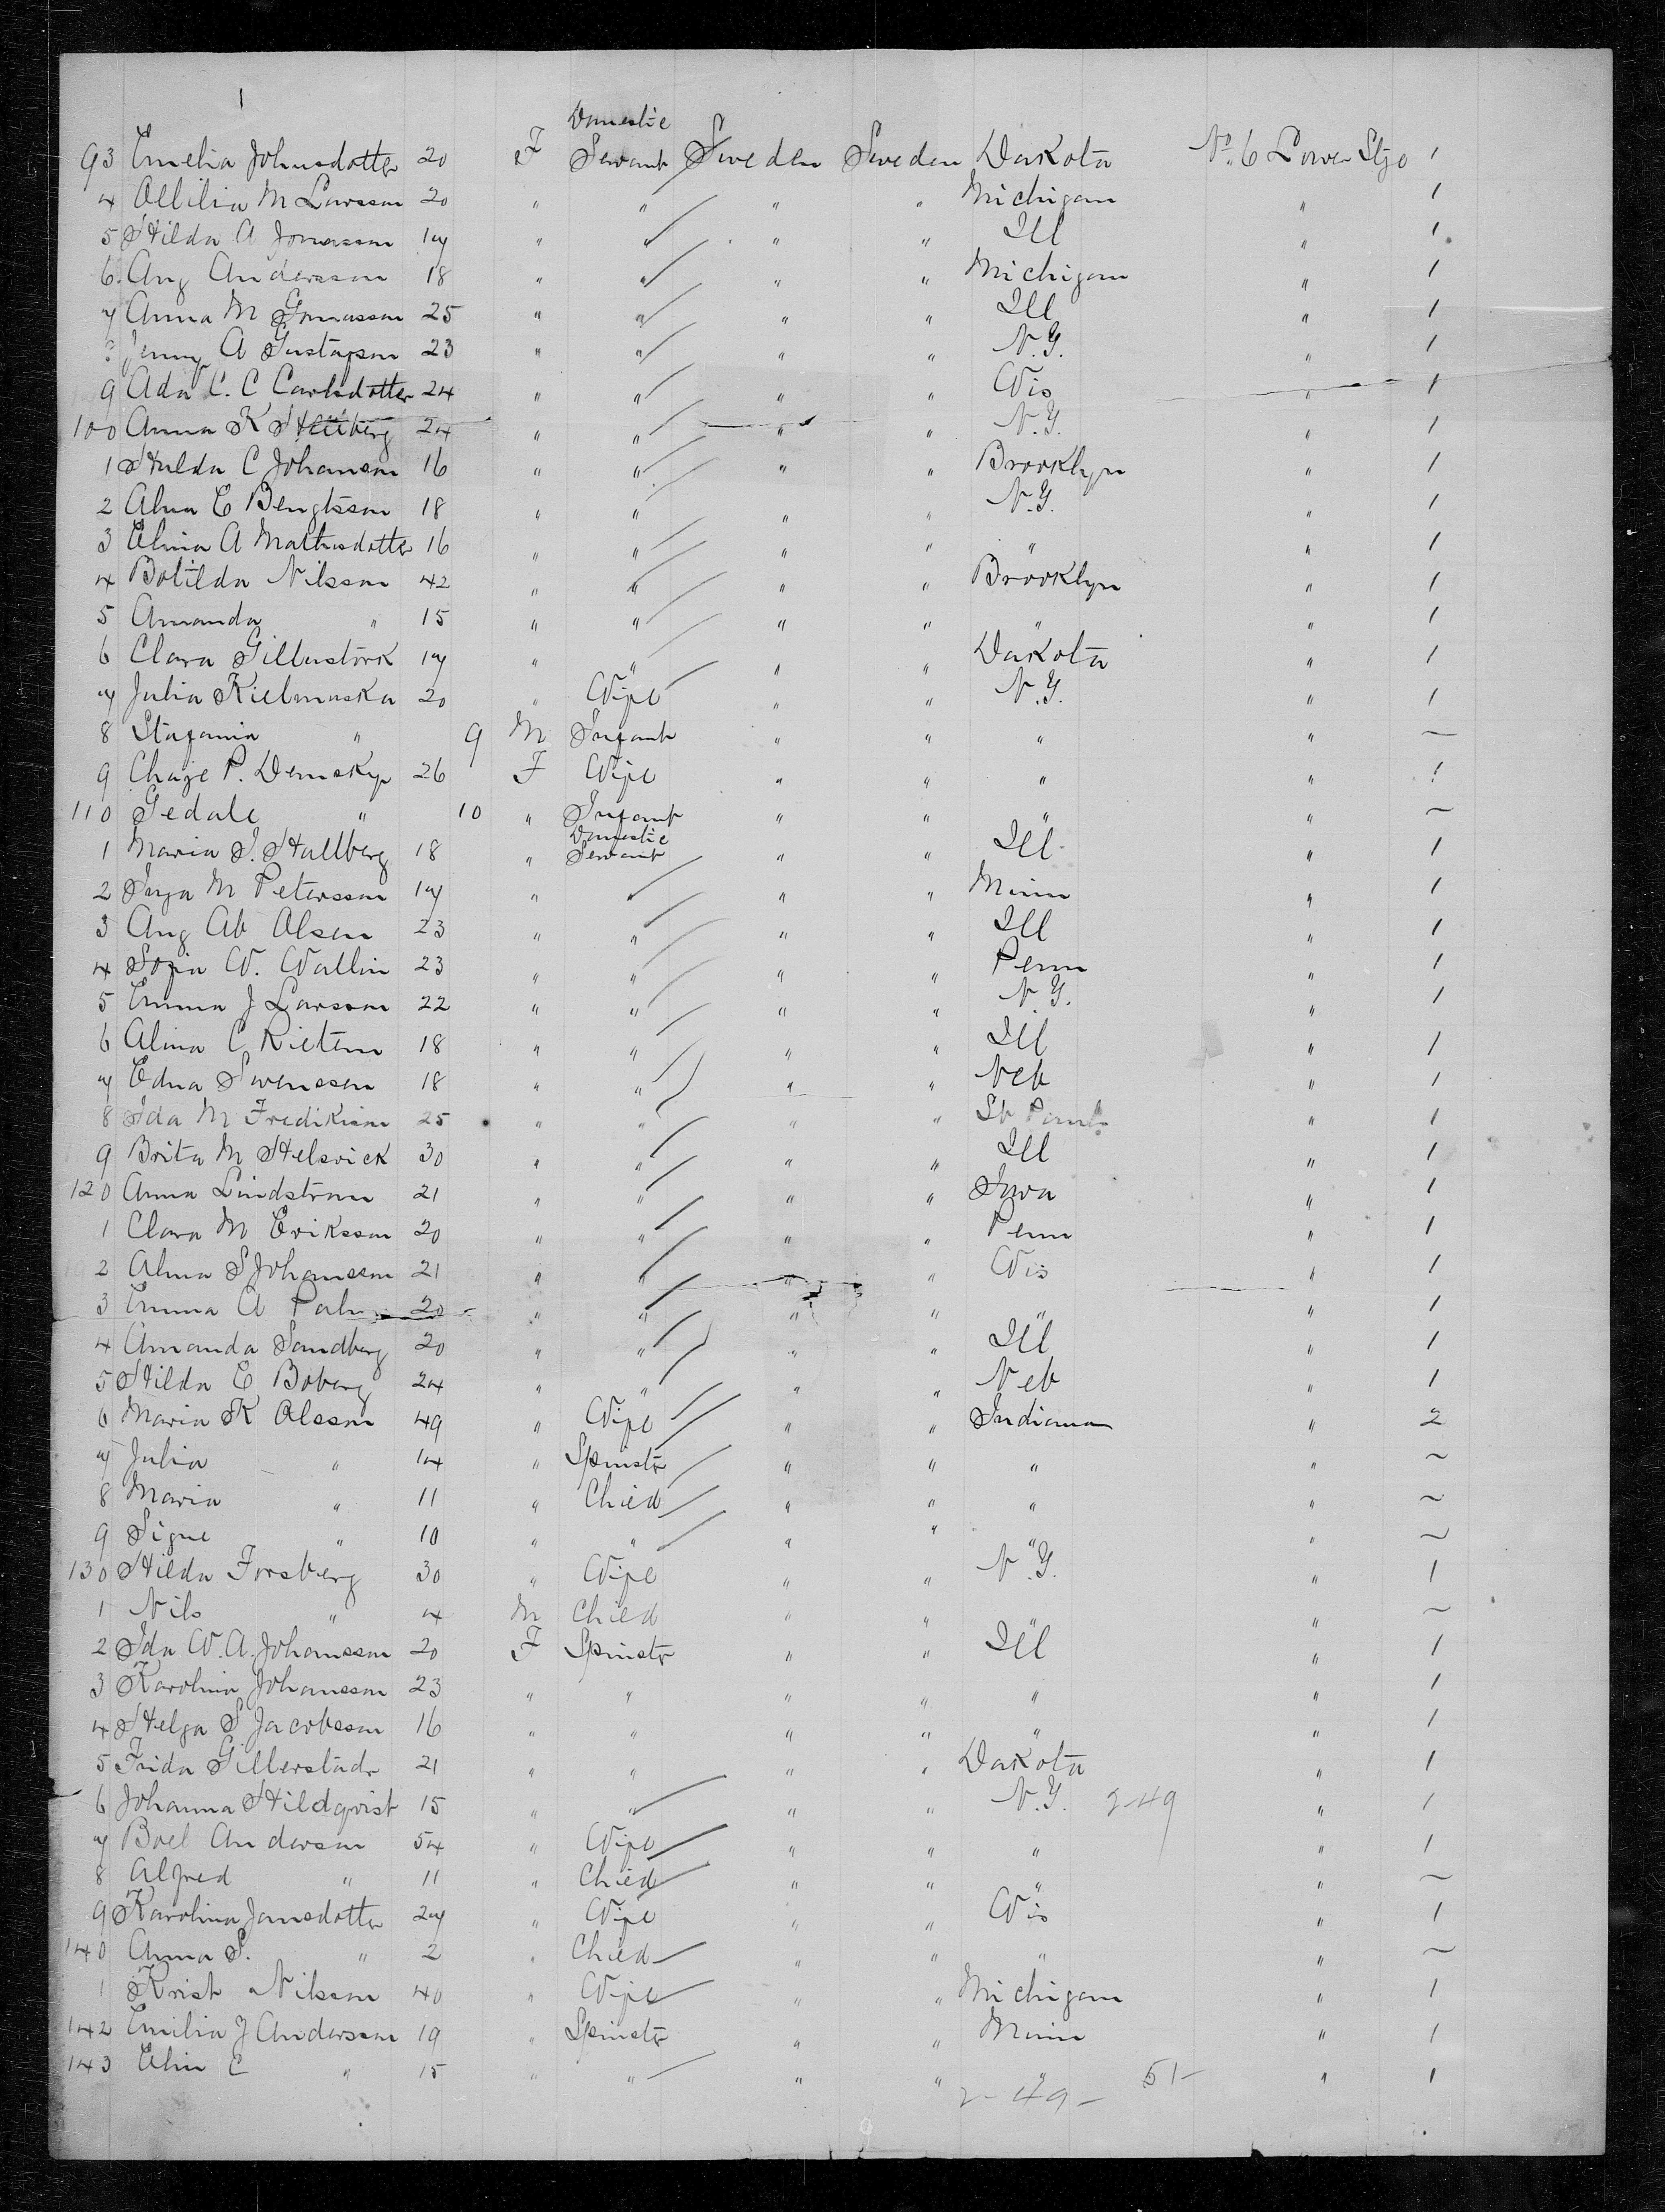 1
Domestic
93 Emelia Johnsdotter 20 F Servant Sweden Sweden Dakota No. 6 Lower Stge 1
4 Ottilia M Larsson 20 " " " " Michigan " 1
5 Hilda A Jonasson 17 " " " " Ill " 1
6 Aug Andersson 18 " " " " Michigan " 1
7 Anna M Jonasson 25 " " " " Ill " 1
8 Jenny A Gustafson 23 " " " " N.Y. " 1
9 Ada C. C Carlsdotter 24 " " " " Wis " 1
100 Anna K 24 " " " " N.Y. " 1
1 Hulda C Johanson 16 " " " " Brooklyn " 1
2 Alma E Bengtsson 18 " " " " N.Y. " 1
3 Elina A 16 " " " " " " 1
4 Botilda Nilsson 42 " " " " Brooklyn " 1
5 Amanda " 15 " " " " " " 1
6 Clara 17 " " " " Dakota " 1
7 Julia Kielmaska 20 " Wife " " N.Y. " 1
8 Stafania " 9 M Infant " " " " ~
9 Chaje P. Demskyp 26 F Wife " " " " 1
110 Gedale " 10 " Infant " " " " ~
Domestic
1 Maria S. Hallberg 18 " Servant " " Ill " 1
2 Inga M Petersson 17 " " " " Minn " 1
3 Aug Ab Olsen 23 " " " " Ill " 1
4 Sofia W. Wallin 23 " " " " Penn " 1
5 Emma J Larsson 22 " " " " N.Y. " 1
6 Alma C 18 " " " " Ill " 1
7 Edna Swenssen 18 " " " " Neb " 1
8 Ida M 25 " " " " St Paul " 1
9 Brita M Helsvick 30 " " " " Ill " 1
120 Anna Lindstrom 21 " " " " Iowa " 1
1 Clara M Eriksson 20 " " " " Penn " 1
2 Alma S Johansson 21 " " " " Wis " 1
3 Emma A 20 " " " " " " 1
4 Amanda Sandberg 20 " " " " Ill " 1
5 Hilda E Boberg 24 " " " " Neb " 1
6 Maria K Olsson 49 " Wife " " Indiana " 2
7 Julia " 14 " Spinstr " " " " ~
8 Maria " 11 " Child " " " " ~
9 Signe " 10 " " " " " " ~
130 Hilda Forsberg 30 " Wife " " N.Y. " 1
1 Nils " 4 M Child " " " " ~
2 Ida W. A. Johansson 20 F Spinstr " " Ill " 1
3 Karolina Johansson 23 " " " " " " 1
4 Helga S Jacobsson 16 " " " " " " 1
5 Frida Gillerstadr 21 " " " " Dakota " 1
6 Johanna Hildqvist 15 " " " " N.Y. 2-49 " 1
7 Boel Anderson 54 " Wife " " " " 1
8 Alfred " 11 " Child " " " " ~
9 Karolina Jansdotter 27 " Wife " " Wis " 1
140 Anna S. " 2 " Child " " " " ~
1 Krist Nilsson 40 " Wife " " Michigan " 1
142 Emilia J Andersson 19 " Spinstr " " Minn " 1
143 Elin E " 15 " " " " " 51- " 1
2-49-